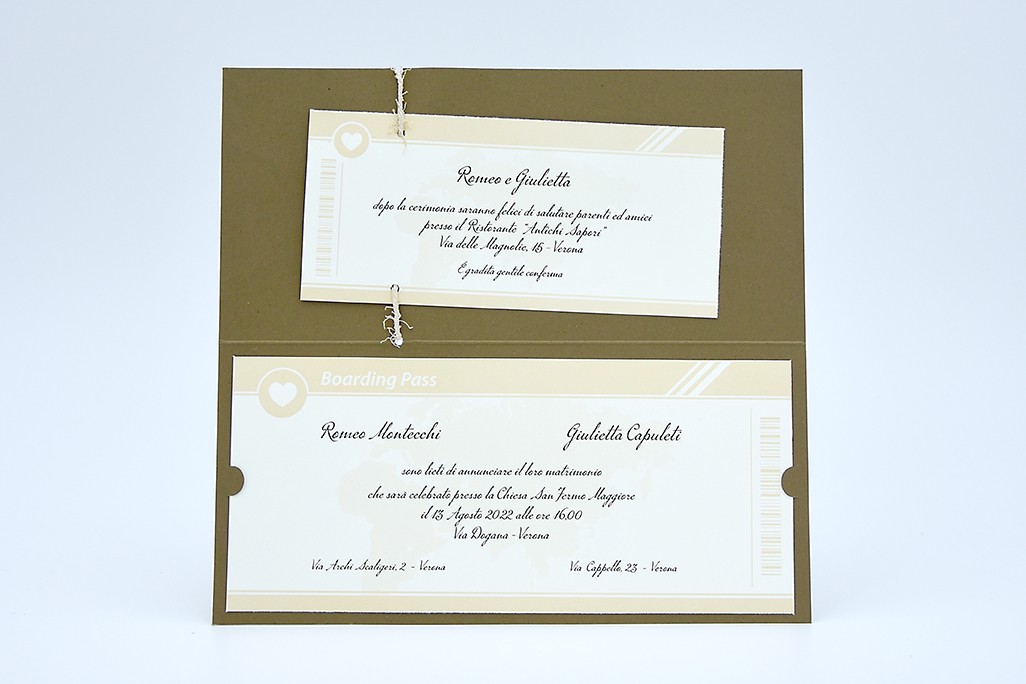 Romeo e Giulietta
dopo la cerimonia saranno felici di salutare parenti ed amici
presso il Ristorante "Antichi Sapori"
Via delle Magnolie, 15 - Verona
È gradita gentile conferma
Boarding Pass
Romeo Montecchi Giulietta Capuleti
sono lieti di annunciare il loro matrimonio
che sarà celebrato presso la Chiesa San Fermo Maggiore
il 13 Agosto 2022 alle ore 16,00
Via Dogana - Verona
Via Archi Scaligeri, 2 - Verona Via Cappello, 23 - Verona